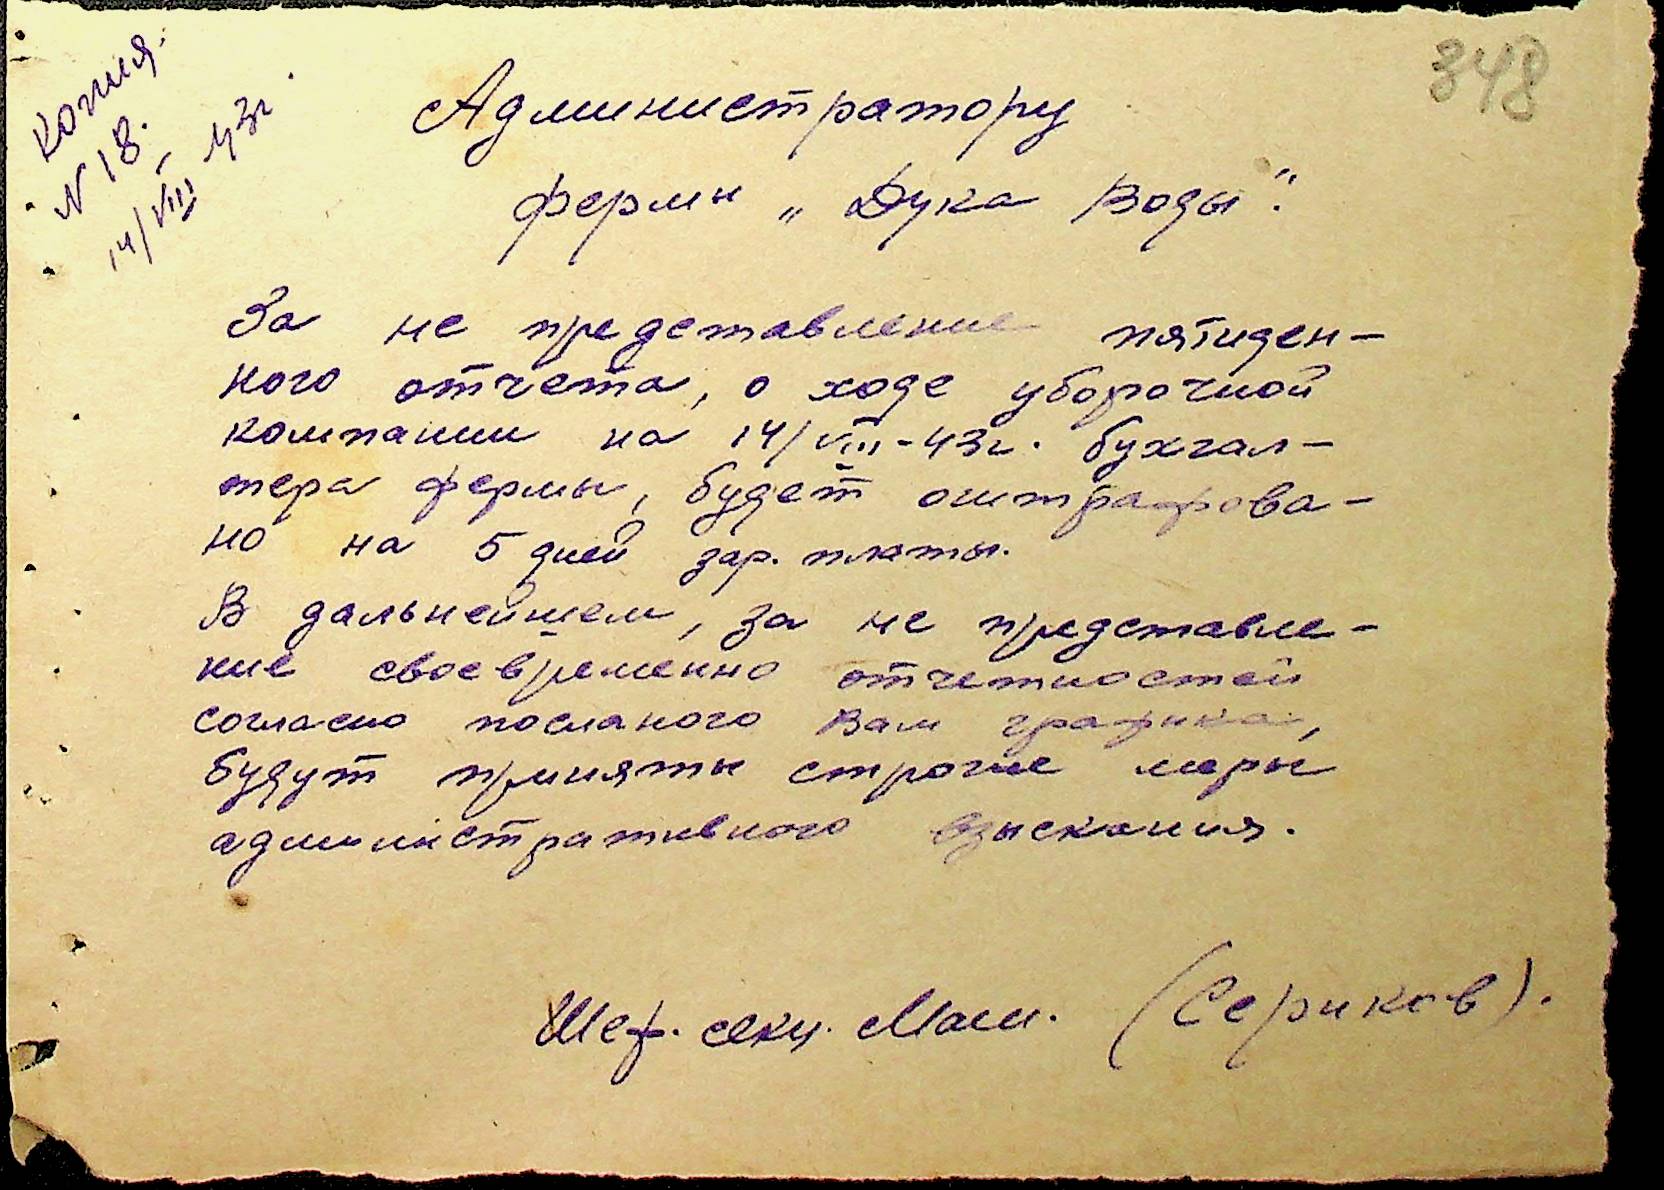 Копия.
N 18.
14/VIII 43г.
348
Администратору
фермы „Дука Воды".
За не представление пятиден-
ного отчета, о ходе уборочной
компании на 14/VIII-43г. бухгал-
тера фермы, будет оштрафова-
но на 5 дней зар. платы.
В дальнейшем, за не представле-
ние своевременно отчетностей
согласно посланого Вам графика,
будут приняты строгие меры
административного взыскания.
Шеф. секц. Маш. (Сериков).